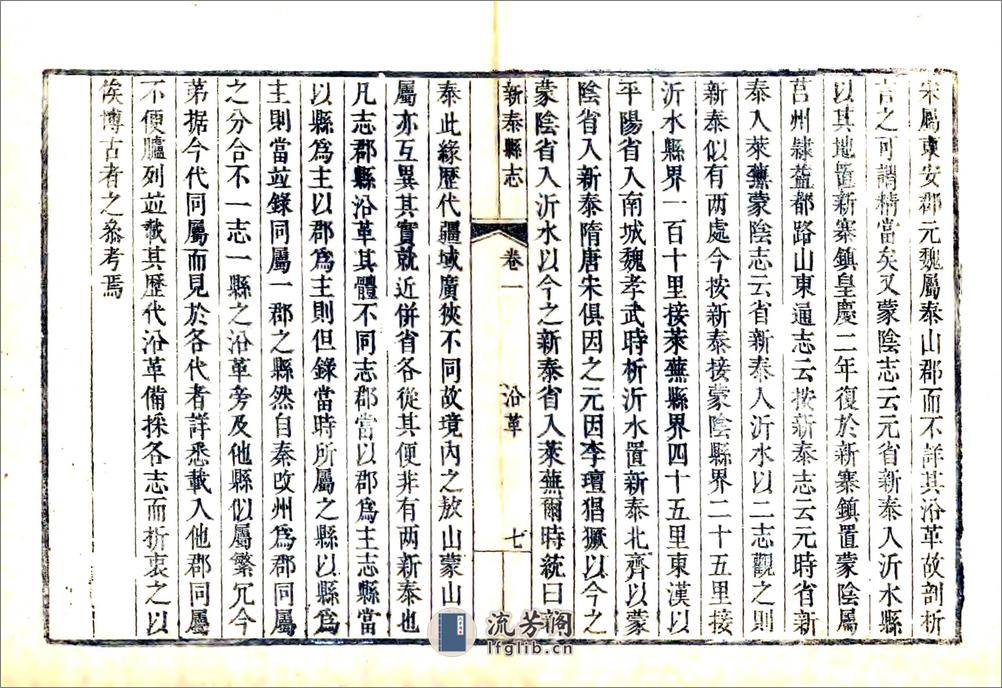 宋屬東安郡元魏屬泰山郡而不詳其沿革故剖析
言之可謂精當矣又蒙陰志云元省新泰入沂水縣
以其地置新寨鎮皇慶二年復於新寨鎮置蒙陰屬
莒州隸益都路山東通志云按新泰志云元時省新
泰入萊蕪蒙陰志云省新泰入沂水以二志觀之則
新泰似有两處今按新泰接蒙陰縣界二十五里接
沂水縣界一百十里接萊蕪縣界四十五里東漢以
平陽省入南城魏孝武時析沂水置新泰北齊以蒙
陰省入新泰隋唐宋俱因之元因李璮猖獗以今之
蒙陰省入沂水以今之新泰省入萊蕪爾時統曰新
新泰縣志 卷一 沿革 七
泰此緣歷代疆域廣狹不同故境內之敖山蒙山
屬亦互異其實就近併省各從其便非有两新泰也
凡志郡縣沿革其體不同志郡當以郡爲主志縣當
以縣爲主以郡爲主則但錄當時所屬之縣以縣爲
主則當並錄同屬一郡之縣然自秦改州爲郡同屬
之分合不一志一縣之沿革旁及他縣似屬繁冗今
第据今代同屬而見於各代者詳悉載入他郡同屬
不便臚列並載其歷代沿革備採各志而折衷之以
俟博古者之叅考焉
流芳阁
lfglib.cn